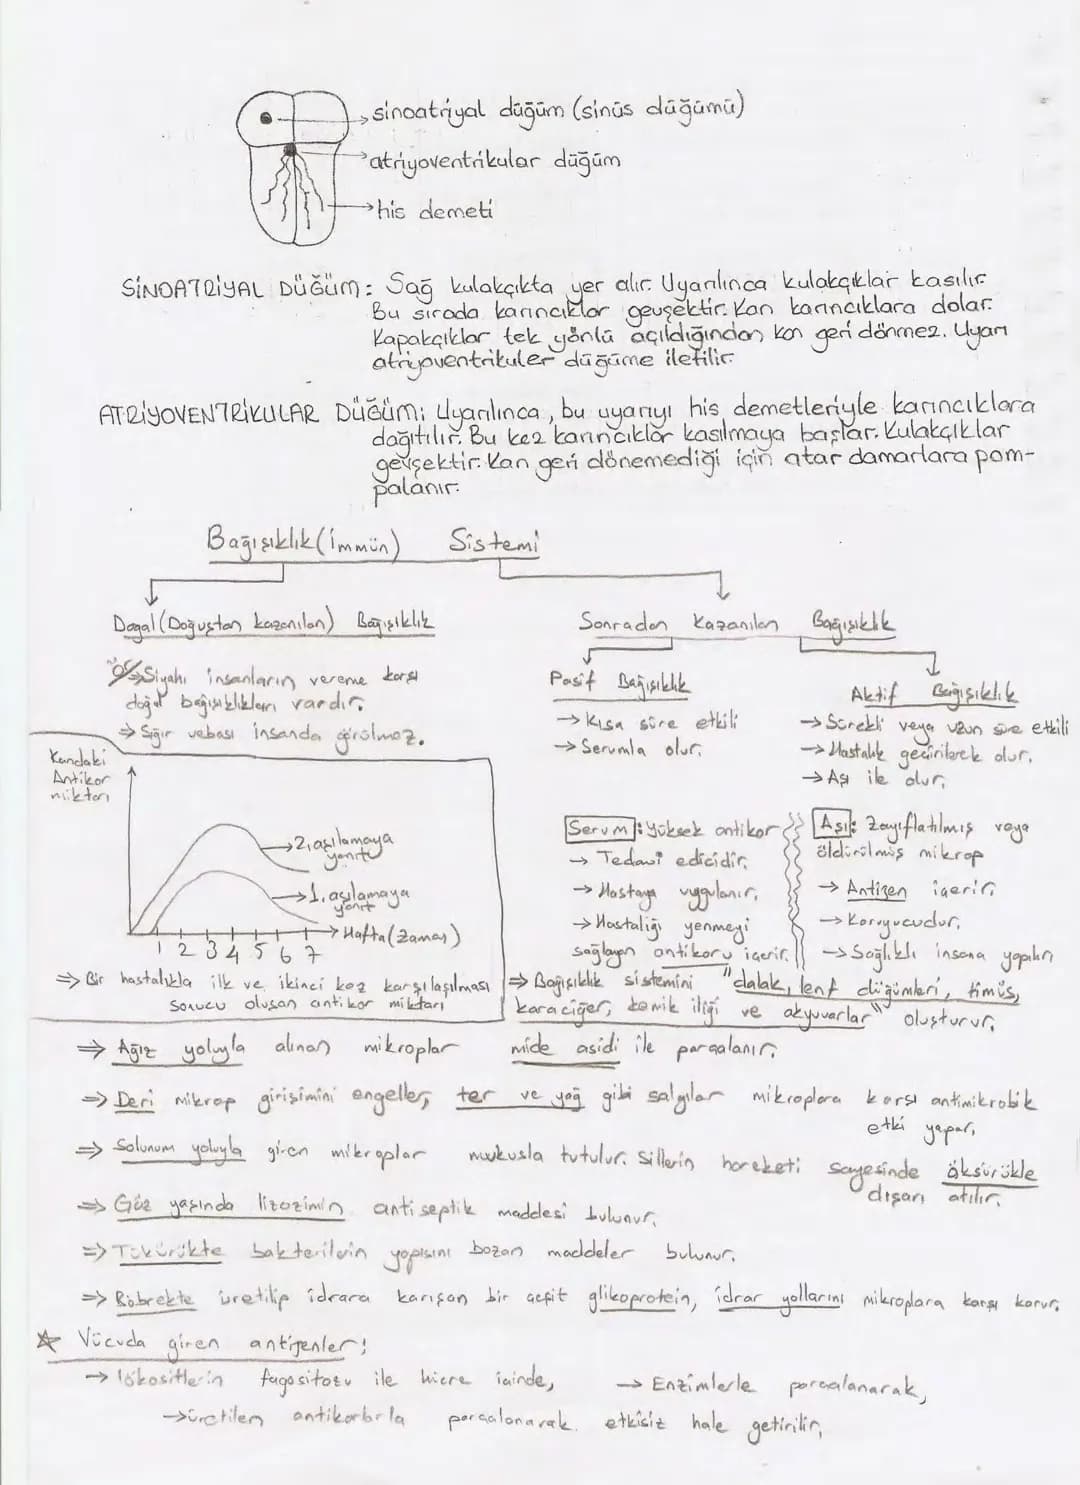 sinoatriyal düğüm (sinüs düğümü)
atriyoventrikular düğüm
his demeti
SİNOATRİYAL DÜĞÜM: Sağ kulakçıkta yer alır. Uyarılınca kulakçıklar kasılır.
Bu sırada karıncıklar gevşektir. Kan karıncıklara dolar.
Kapakçıklar tek yönlü açıldığından kan geri dönmez. Uyarı
atriyoventrikuler düğüme iletilir.
ATRİYOVENTRİKULAR DÜĞÜM: Uyarılınca, bu uyarıyı his demetleriyle karıncıklara
dağıtılır. Bu kez karıncıklar kasılmaya başlar. Kulakçıklar
gevşektir. Kan geri dönemediği için atar damarlara pom-
palanır.
Bağışıklık (İmmün) Sistemi
Dogal (Doğuştan kazanılan) Bağışıklık
ÖR/⇒Siyahi insanların vereme karşı
doğal bağışıklıkları vardır.
⇒ Sığır vebası insanda görülmez.
Sonradan Kazanılan Bağışıklık
Pasif Bağışıklık
→ Kısa süre etkili
→ Serumla olur.
Aktif Bağışıklık
→ Sürekli veya uzun süre etkili
→ Hastalık geçirilerek olur.
→ Aşı ile olur.
Kandaki
Antikor
miktarı
→2. aşılamaya
yanıtı
→1. aşılamaya
yanıt
→ Hafta (Zaman)
1 2 3 4 5 6 7
⇒ Bir hastalıkla ilk ve ikinci kez karşılaşılması
sonucu oluşan antikor miktarı
Serum: Yüksek antikor
→ Tedavi edicidir.
→ Hastaya uygulanır.
→ Hastalığı yenmeyi
sağlayan antikoru içerir.
Aşı: Zayıflatılmış veya
öldürülmüş mikrop
→ Antijen içerir.
→ Koruyucudur.
→ Sağlıklı insana yapılır
⇒ Bağışıklık sistemini "dalak, lenf düğümleri, timüs,
karaciğer, kemik iliği ve akyuvarlar" oluşturur.
⇒ Ağız yoluyla alınan mikroplar mide asidi ile parçalanır.
⇒ Deri mikrop girişimini engeller, ter ve yağ gibi salgılar mikroplara karşı antimikrobik
etki yapar.
⇒ Solunum yoluyla giren mikroplar mukusla tutulur. Sillerin hareketi sayesinde öksürükle
dışarı atılır.
⇒ Göz yaşında lizozimin antiseptik maddesi bulunur.
⇒ Tükürükte bakterilerin yapısını bozan maddeler bulunur.
⇒ Böbrekte üretilip idrara karışan bir çeşit glikoprotein, idrar yollarını mikroplara karşı korur.
☆ Vücuda giren antijenler;
→ lökositlerin fagositozu ile hücre içinde, → Enzimlerle parçalanarak,
→ üretilen antikorlarla parçalanarak etkisiz hale getirilir.